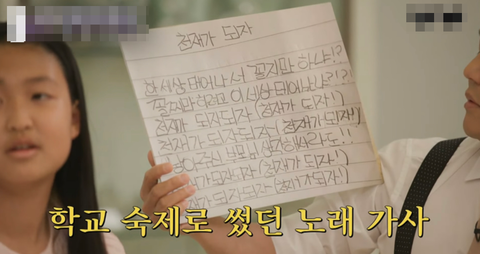 천재가 되자
한세상 태어나서 꼴찌만 하냐!?
꼴찌만 하려고 이세상 태어났냐?!?!
천재가 되자되자 (천재가 되자!)
천재가 되자되자 (천재가 되자!)
부모님 생각해서라도!!
되자되자 (천재가 되자!)
되자되자 (천재가 되자!)
학교 숙제로 썼던 노래 가사